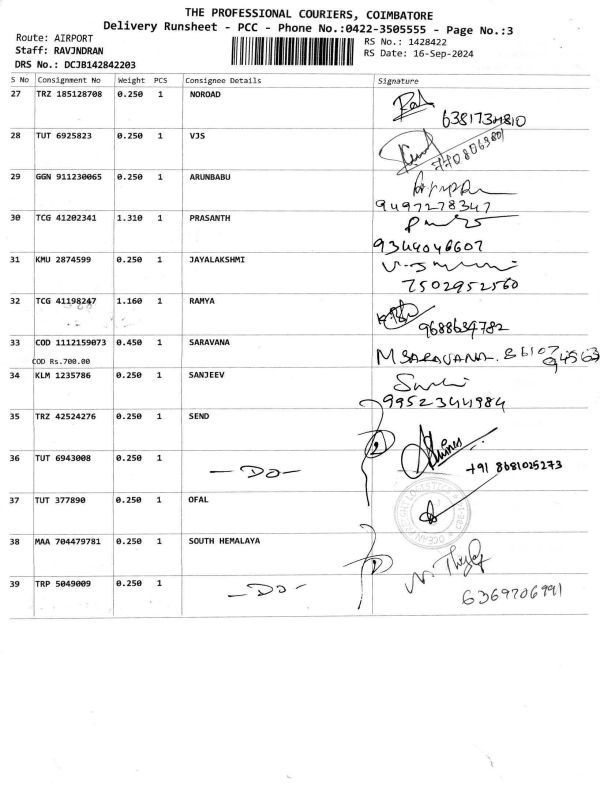 THE PROFESSIONAL COURIERS, COIMBATORE
Delivery Runsheet - PCC - Phone No.:0422-3505555 - Page No.:3
Route: AIRPORT
Staff: RAVJNDRAN
DRS No.: DCJB142842203
RS No.: 1428422
RS Date: 16-Sep-2024
S No Consignment No Weight PCS Consignee Details Signature
27 TRZ 185128708 0.250 1 NOROAD
28 TUT 6925823 0.250 1 VJS
29 GGN 911230065 0.250 1 ARUNBABU
9497278347
30 TCG 41202341 1.310 1 PRASANTH
9344046607
31 KMU 2874599 0.250 1 JAYALAKSHMI
7502952560
32 TCG 41198247 1.160 1 RAMYA
9688634782
33 COD 1112159073 0.450 1 SARAVANA M SARAVANA.
COD Rs.700.00
34 KLM 1235786 0.250 1 SANJEEV
9952344984
35 TRZ 42524276 0.250 1 SEND
2
36 TUT 6943008 0.250 1 - Do - +91 8681025273
37 TUT 377890 0.250 1 OFAL
38 MAA 704479781 0.250 1 SOUTH HEMALAYA
39 TRP 5049009 0.250 1 - Do - 6369706991